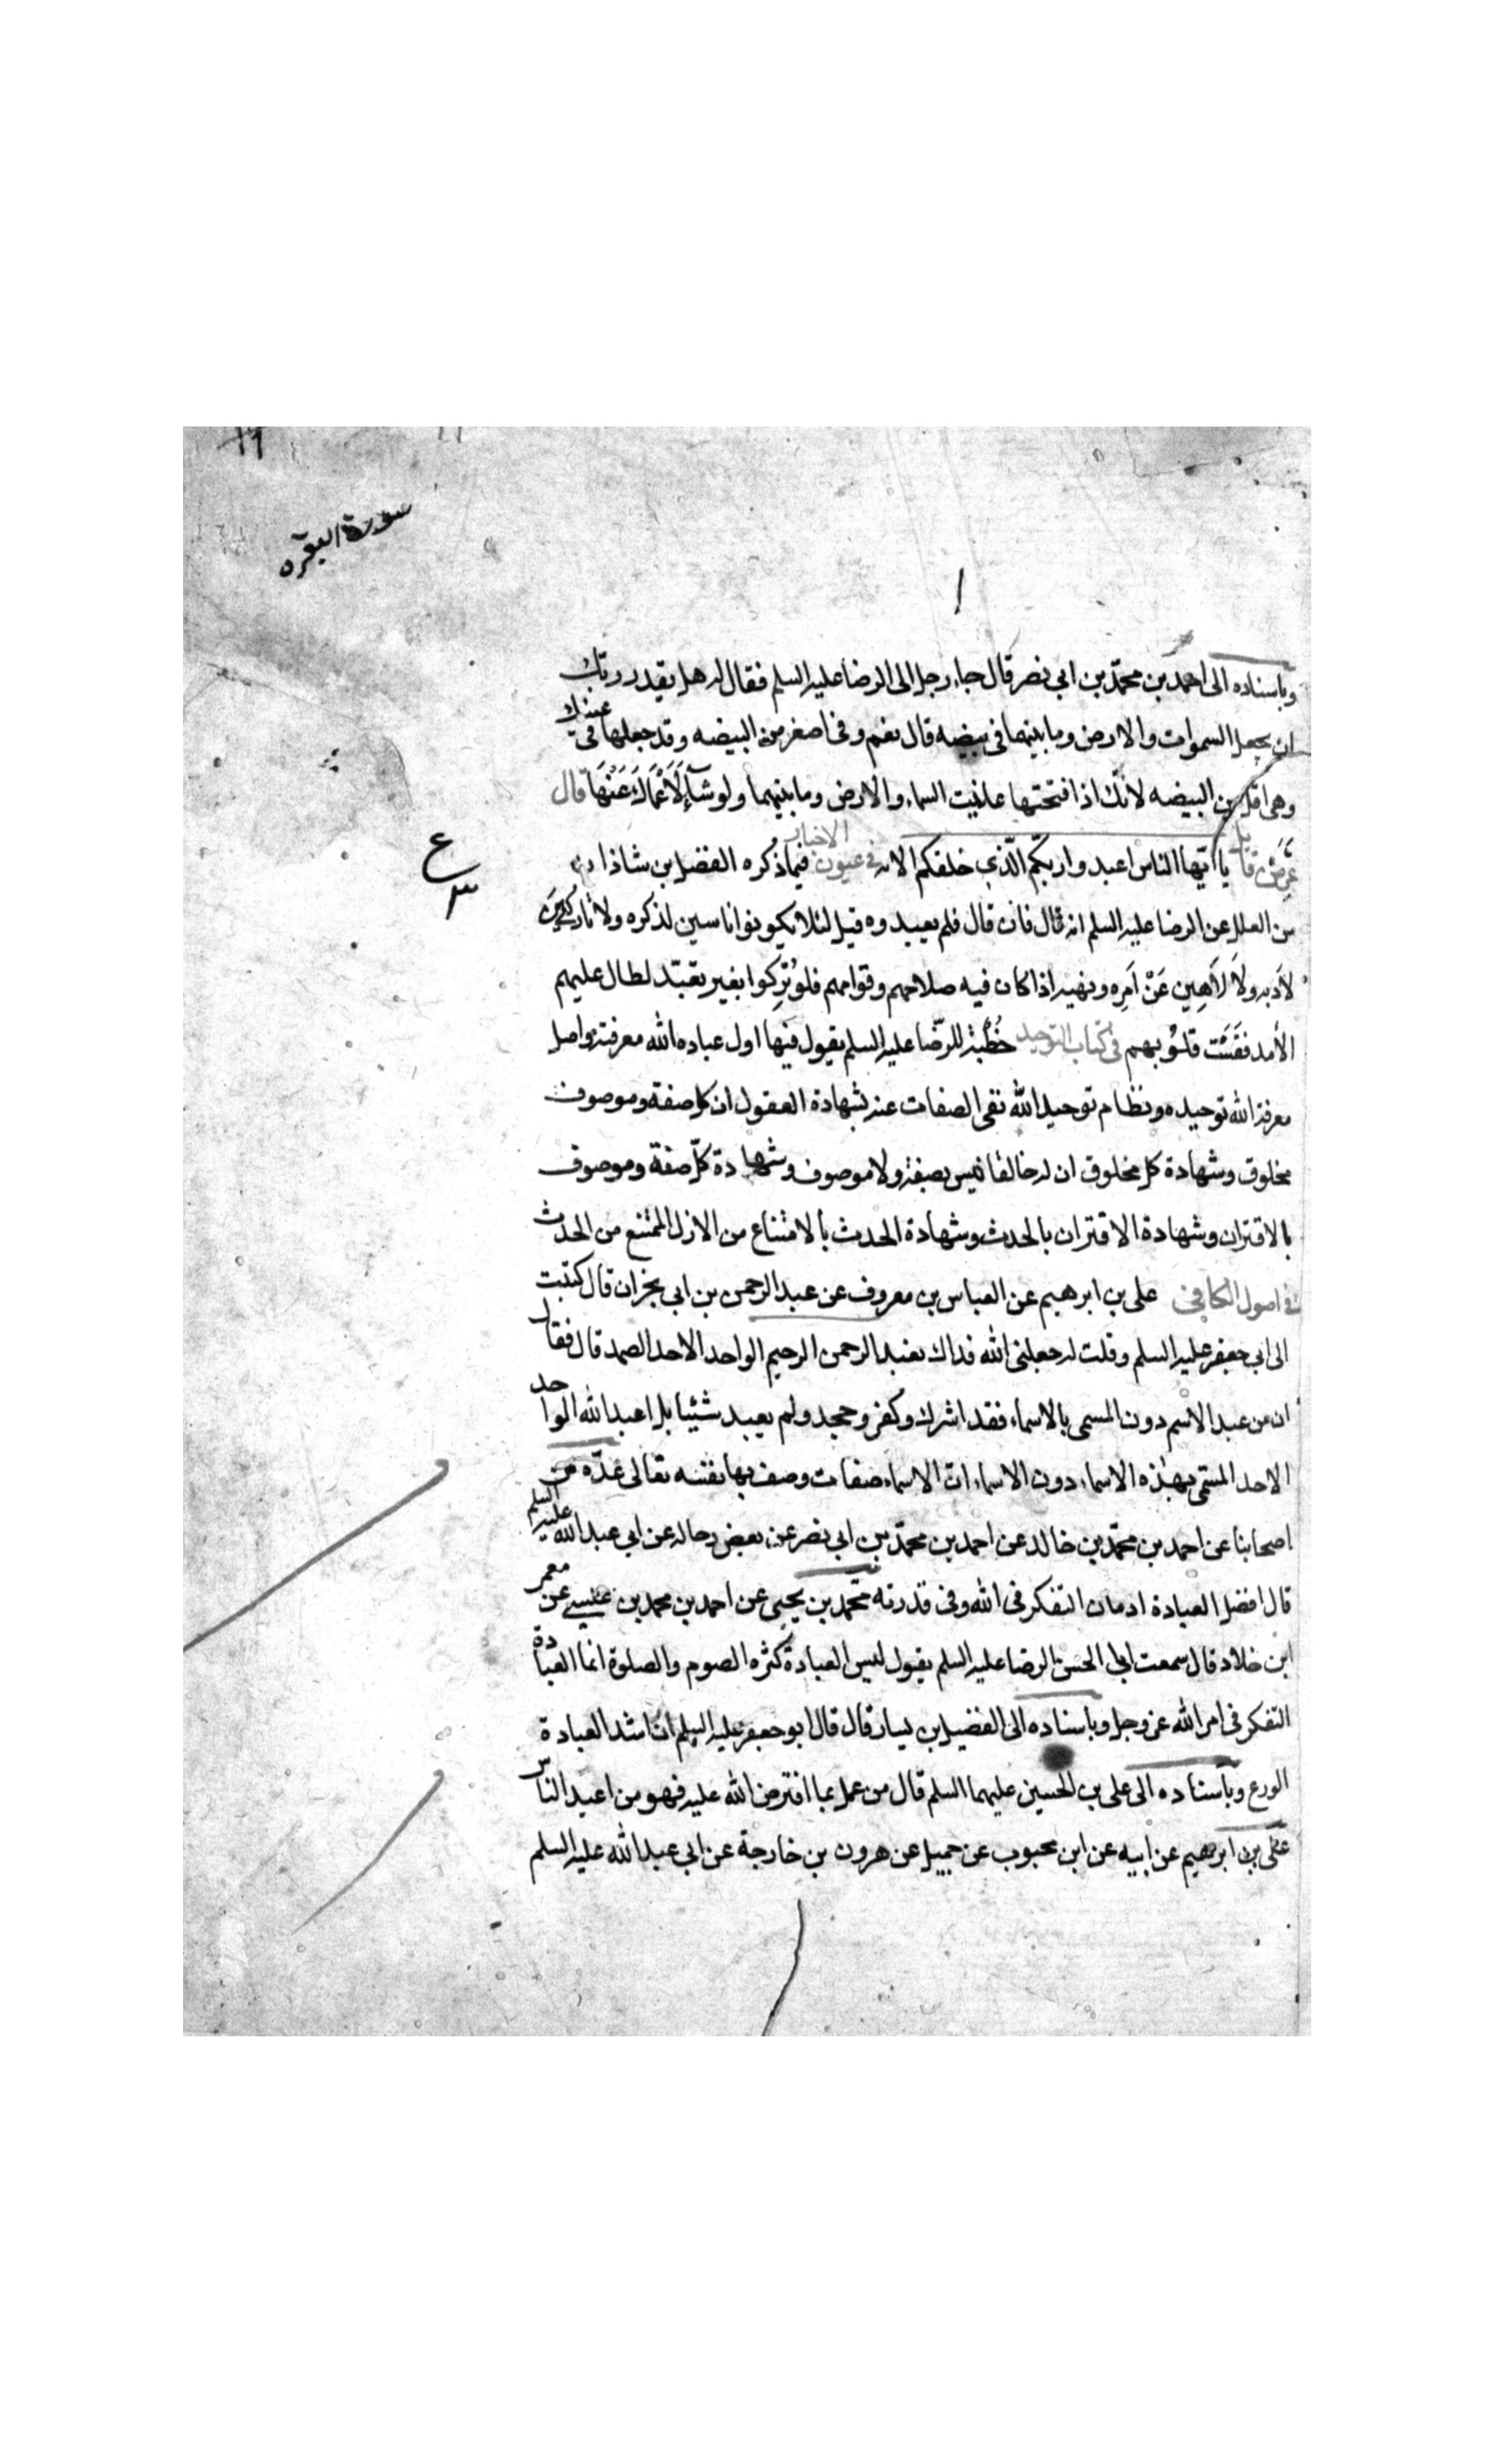 سورة البقره
وباسناده الى احمد بن محمّد بن ابي نصر قال جاء رجل الى الرضا عليه السلم فقال له هل يقدر ربّك
ان يجعل السموات والارض وما بينهما في بيضه قال نعم وفي اصغر من البيضه وقد جعلها في عينك
وهي اقل من البيضه لانّك اذا فتحتها عاينت السماء والارض وما بينهما ولو شآء لَاَعْمَاكَ عَنْهَا قال
يا ايّها الناس اعبدوا ربّكم الّذي خلقكم الايه في عيون الاخبار فيما ذكره الفضل بن شاذان
من العلل عن الرضا عليه السلم انه قال فان قال فلم يعبدوه قيل لئلا يكونوا ناسين لذكره ولا تاركين
لاَدبه ولاَ لاَهِين عَنْ اَمرِه ونهيه اذا كان فيه صلاحهم وقوامهم فلو تُرِكوا بغير تعبّد لطال عليهم
الاَمد فقَسَت قلوُبهم في كتاب التوحيد خُطْبَة للرّضا عليه السلم يقول فيها اول عباده الله معرفته واصل
معرفة الله توحيده ونظام توحيد الله نفى الصفات عنه بشهادة العقول ان كل صفة وموصوف
مخلوق وشهادة كل مخلوق ان له خالقا ليس بصفة ولا موصوف وشهادة كلّ صفة وموصوف
بالاقتران وشهادة الاقتران بالحدث وشهادة الحدث بألامتناع من الازل الممتنع من الحدث
في اصول الكافي على بن ابرهيم عن العباس بن معروف عن عبد الرحمن بن ابي نجران قال كتبت
الى ابي جعفر عليه السلم وقلت له جعلني الله فداك نعبد الرحمن الرحيم الواحد الاحد الصمد قال فقال
ان من عبد الاسم دون المسمى بالاسماء فقد اشرك وكفر وجحد ولم يعبد شيئا بل اعبد الله الواحد
الاحد المسّمى بهذه الاسماء دون الاسماء انّ الاسماء صفات وصف بها نفسه تعالى عدّه من
اصحابنا عن احمد بن محمّد بن خالد عن احمد بن محمّد بن ابي نصر عن بعض رجاله عن ابي عبد الله عليه السلم
قال افضل العبادة ادمان التفكر في الله وفي قدرته محّمد بن يحيى عن احمد بن محمد بن عيسى عن معمر
ابن خلاد قال سمعت ابا الحسن الرضا عليه السلم يقول ليس العبادة كثره الصوم والصلوة انما العبادة
التفكر في امر الله عز وجل وباسناده الى الفضيل بن يسار قال قال ابو جعفر عليه السلم انّ اشد العبادة
الورع وباسناده الى على بن الحسين عليهما السلم قال من عمل بما افترض الله عليه فهو من اعبد الناس
علّى بن ابرهيم عن ابيه عن ابن محبوب عن جميل عن هرون بن خارجة عن ابي عبد الله عليه السلم